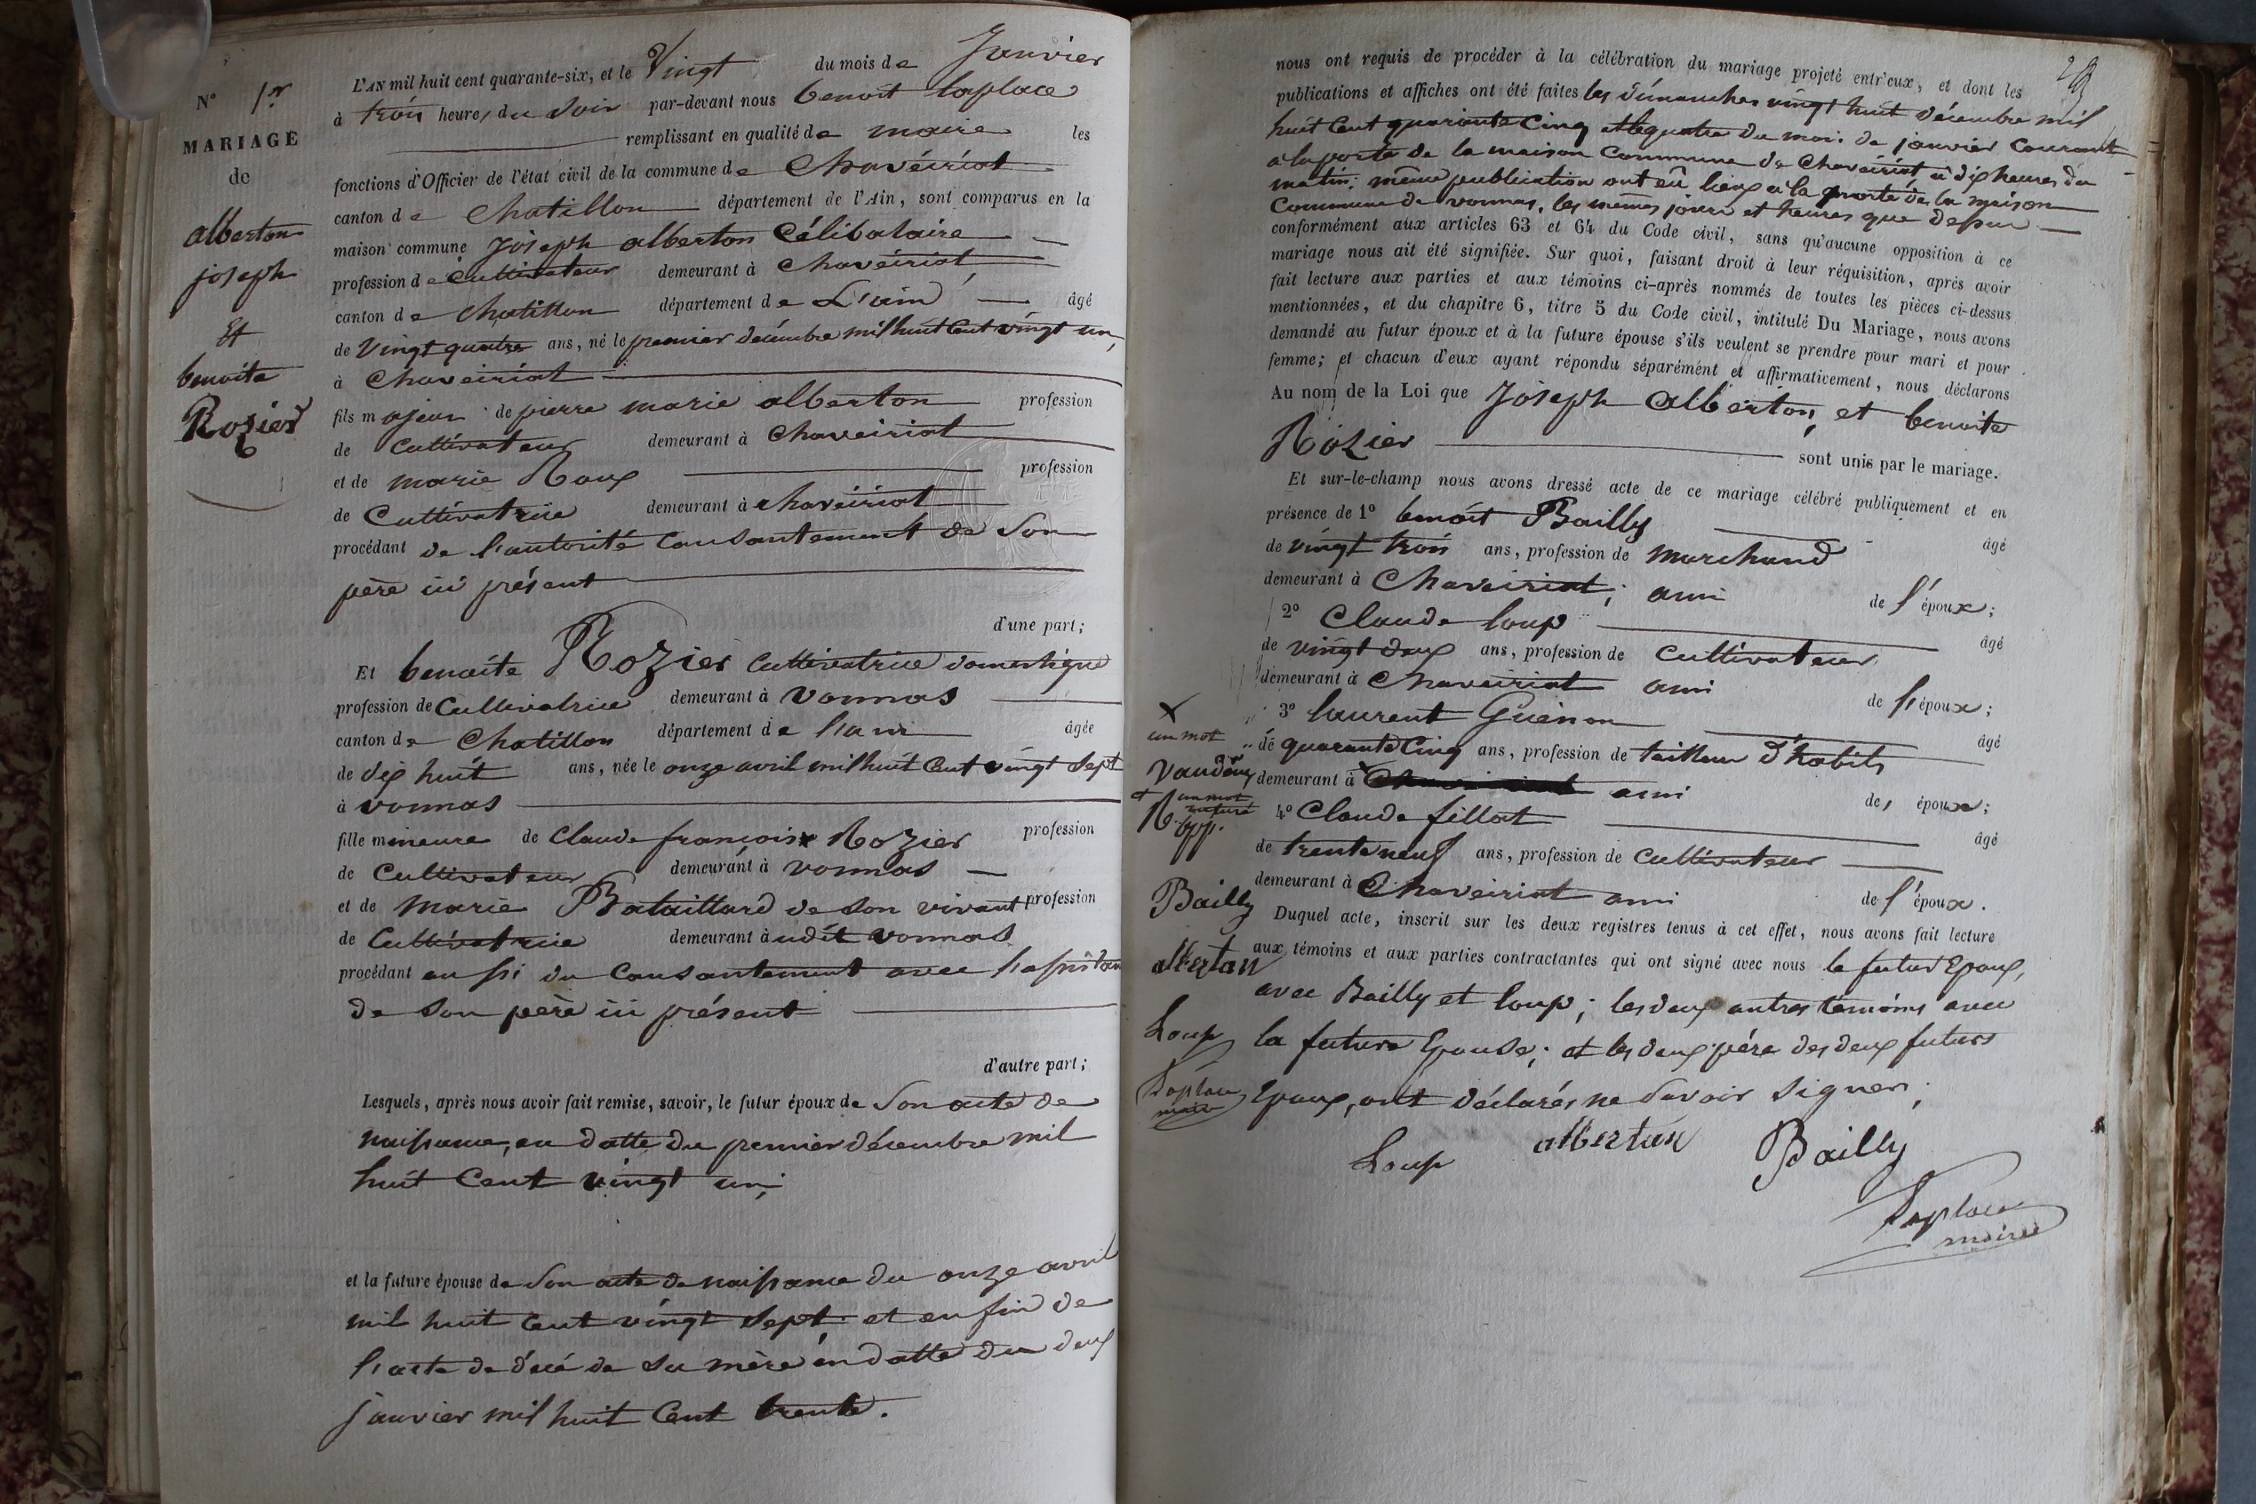 N° 1er
MARIAGE
de
alberton
joseph
Et
benoite
Rozier
L'AN mil huit cent quarante-six, et le Vingt du mois de Janvier
à trois heures du soir par-devant nous benoit laplace
remplissant en qualité de maire les
fonctions d'Officier de l'état civil de la commune de Chavéiriat
canton de Chatillon département de l'Ain, sont comparus en la
maison commune Joseph alberton Célibataire
profession de Cultivateur demeurant à Chavéiriat,
canton de Chatillon département de L'ain âgé
de Vingt quatre ans, né le premier décembre mil huit Cent vingt un,
à Chaveiriat
fils majeur de pierre marie alberton profession
de Cultivateur demeurant à Chaveiriat
et de marie Roux profession
de Cultivatrice demeurant à chavéiriat
procédant de l'autorité Consantement de Son
père ici présent
d'une part;
Et benoite Rozier Cultivatrice domestique
profession de Cultivatrice demeurant à vonnas
canton de Chatillon département de l'ain âgée
de dix huit ans, née le onze avril mil huit Cent vingt sept
à vonnas
fille mineure de Claude françois Rozier profession
de Cultivateur demeurant à vonnas
et de marie Bataillard de son vivant profession
de Cultivatrice demeurant à udit vonnas
procédant aussi du Consantement avec l'assistan
de son père ici présent
d'autre part;
Lesquels, après nous avoir fait remise, savoir, le futur époux de Son acte de
naissance, en datte du premier décembre mil
huit Cent vingt un;
et la future épouse de Son acte de naissance du onze avril
mil huit Cent vingt sept et enfin de
l'acte de décé de sa mère en datte du deux
janvier mil huit Cent trente.
nous ont requis de procéder à la célébration du mariage projeté entr'eux, et dont les
publications et affiches ont été faites les dimanches vingt huit décembre mil
huit Cent quarante Cinq et le quatre du mois de janvier Courant
a la porte de la maison Commune de Chavéiriat à dix heures du
matin; même publication ont eû lieux a la porte de la maison
Commune de vonnas, les memes jours et heures que depu
conformément aux articles 63 et 64 du Code civil, sans qu'aucune opposition à ce
mariage nous ait été signifiée. Sur quoi, faisant droit à leur réquisition, après avoir
fait lecture aux parties et aux témoins ci-après nommés de toutes les pièces ci-dessus
mentionnées, et du chapitre 6, titre 5 du Code civil, intitulé Du Mariage, nous avons
demandé au futur époux et à la future épouse s'ils veulent se prendre pour mari et pour
femme; et chacun d'eux ayant répondu séparément et affirmativement, nous déclarons
Au nom de la Loi que Joseph alberton, et benoite
Rozier sont unis par le mariage.
Et sur-le-champ nous avons dressé acte de ce mariage célébré publiquement et en
présence de 1° benoit Bailly âgé
de vingt trois ans, profession de marchand
demeurant à Chaveiriat, ami de l'époux;
2° Claude loup âgé
de vingt deux ans, profession de Cultivateur
demeurant à Chaveiriat ami de l'époux;
3° laurent Guénon âgé
de quarante Cinq ans, profession de tailleur d'habits
demeurant à ami de, époux;
4° Claude fillat âgé
de trente neuf ans, profession de Cultivateur
demeurant à Chaveiriat ami de l'époux.
Duquel acte, inscrit sur les deux registres tenus à cet effet, nous avons fait lecture
aux témoins et aux parties contractantes qui ont signé avec nous le futur Epoux,
avec Bailly et loup; les deux autres témoins avec
la future Epouse; et les deux père des deux futurs
Epoux, ont déclarés ne Savoir Signer;
un mot
Bailly
alberton
Loup
Laplace
maire
Loup alberton Bailly
Laplace
maire